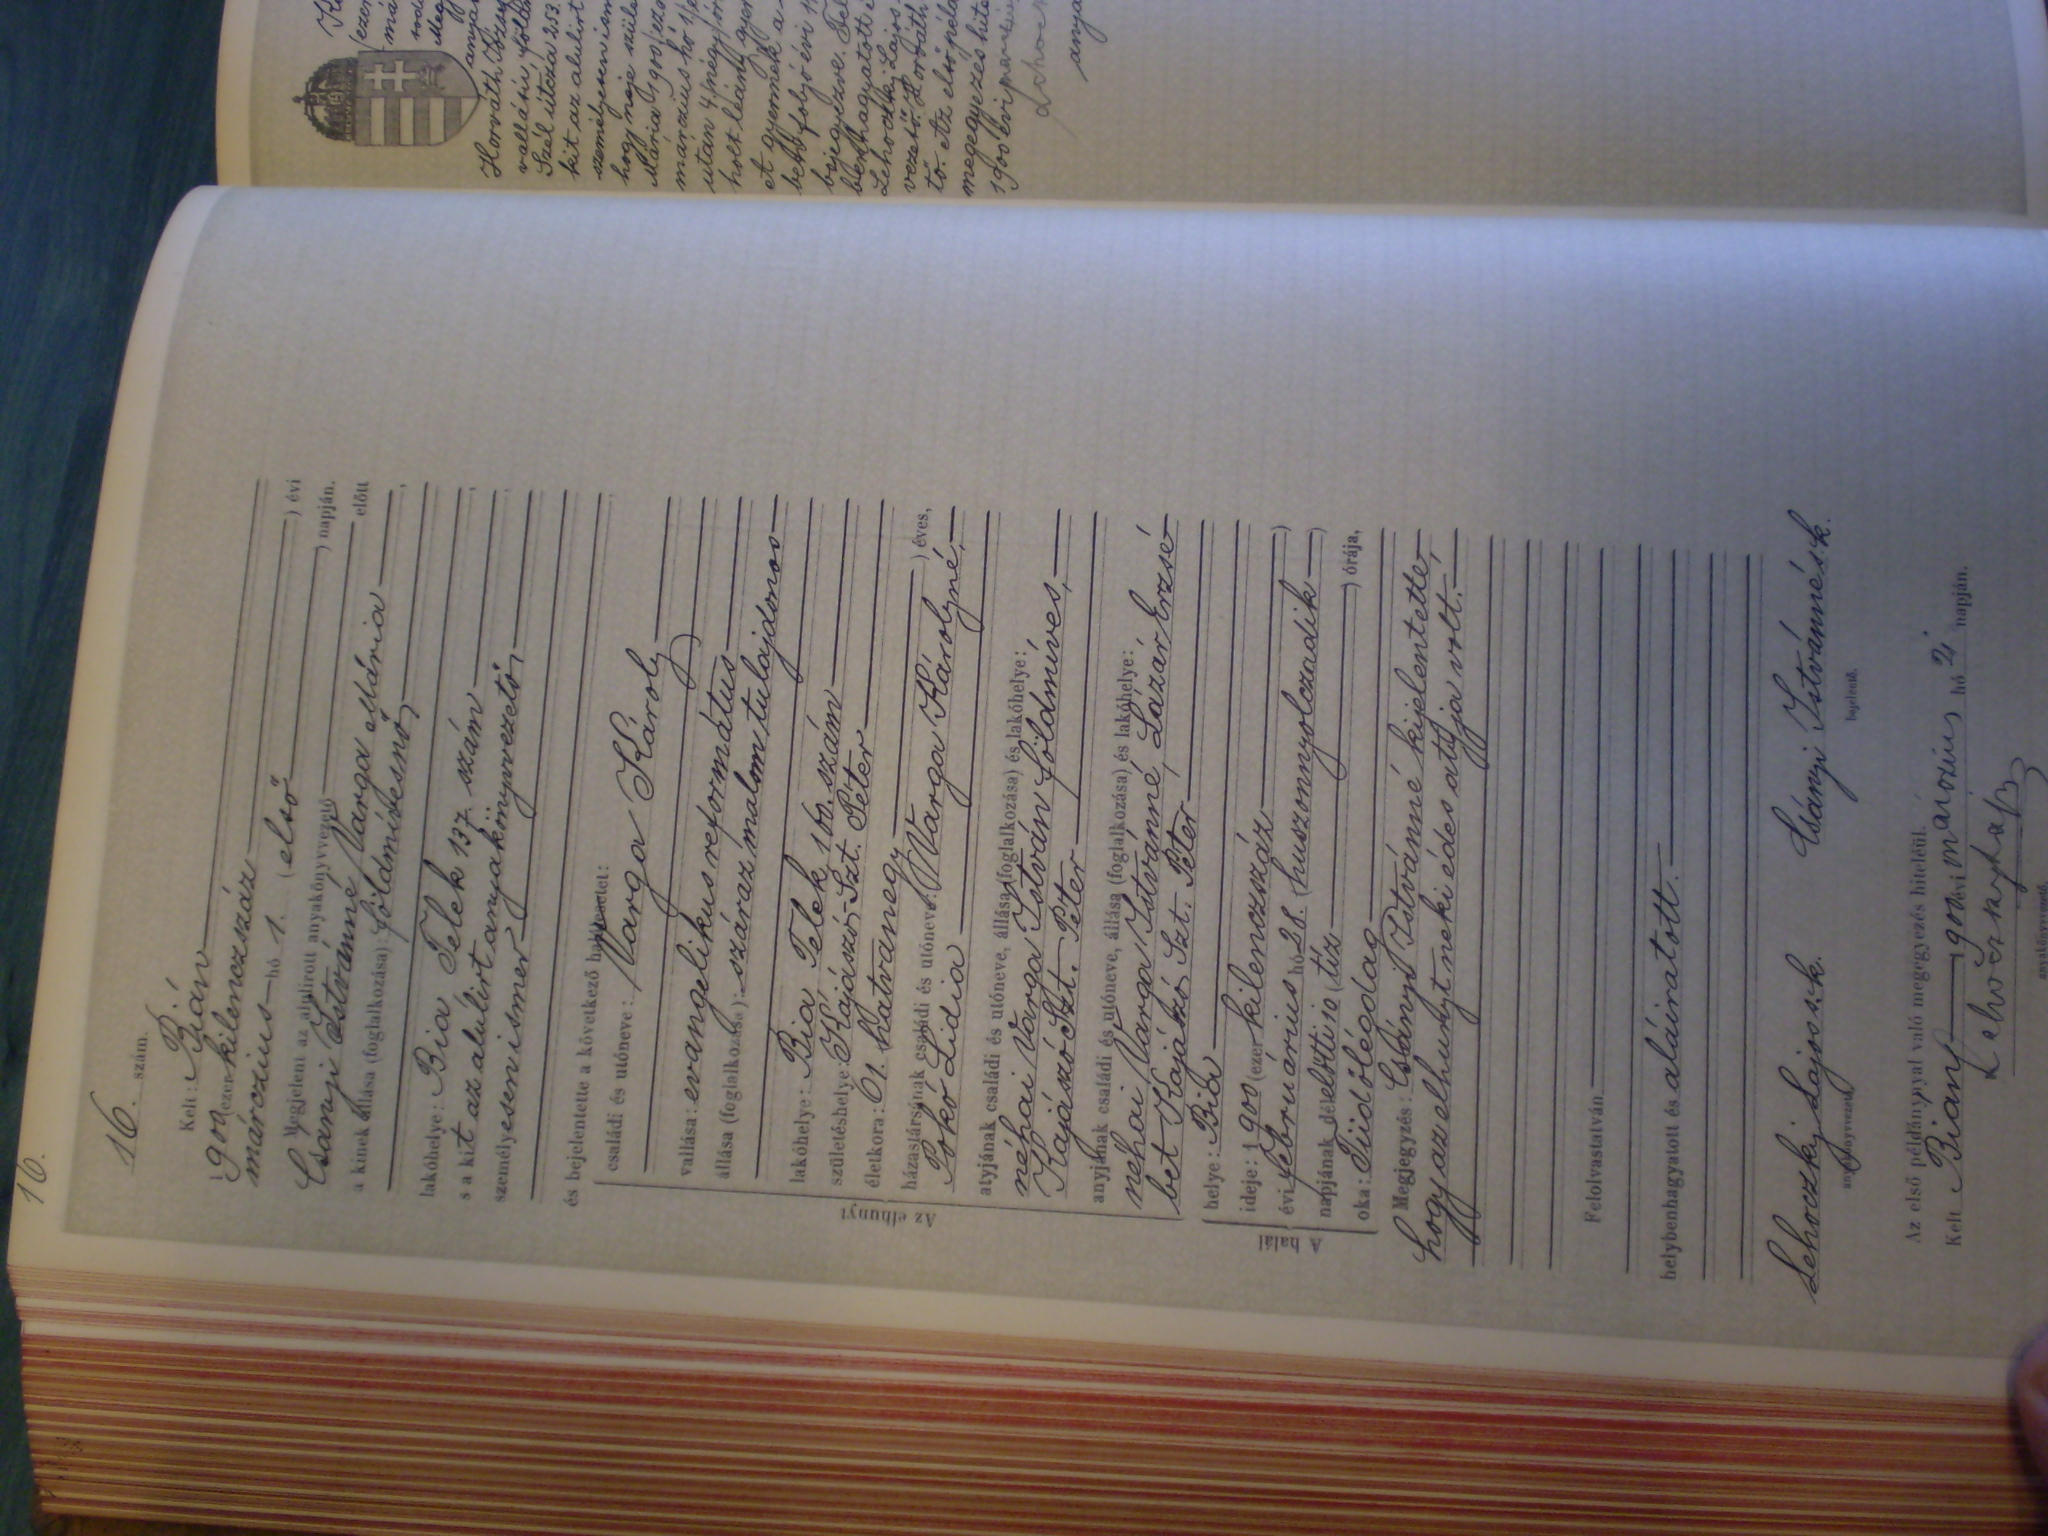 16.
16. szám.
Kelt: Bián
1900 (ezer kilenczszáz) évi
márczius hó 1. (első) napján.
Megjelent az alulirott anyakönyvvezető előtt
Csányi Istvánné Varga Mária
a kinek állása (foglalkozása): földmivesnő,
lakóhelye: Bia Telek 137. szám
s a kit az alulirt anyakönyvvezető
személyesen ismer
és bejelentette a következő halálesetet:
Az elhunyt
családi és utóneve: Varga Károly
vallása: evangelikus református
állása (foglalkozása): száraz malom tulajdonos
lakóhelye: Bia, Telek 160. szám
születéshelye: Kajászó Szt. Péter
életkora: 61. hatvanegy ) éves,
házastársának családi és utóneve: Varga Károlyné,
Pókó Lidia
atyjának családi és utóneve, állása (foglalkozása) és lakóhelye:
néhai Varga István földmíves,
Kajászó Szt. Péter
anyjának családi és utóneve, állása (foglalkozása) és lakóhelye:
néhai Varga Istvánné, Lázár Erzsé
bet Kajászó Szt. Péter
A halál
helye: Bia
ideje: 1900 (ezer kilenczszáz )
évi februárius hó 28. (huszonnyolczadik )
napjának délelőtti 10 (tíz ) órája,
oka: Tüdőlégdag
Megjegyzés: Csányi Istvánné kijelentette,
hogy az elhunyt neki édes attyja volt.
Felolvastatván
helybenhagyatott és aláiratott.
Lehoczky Lajos s.k. Csányi Istvánné s.k.
anyakönyvvezető bejelentő.
Az első példánnyal való megegyezés hiteléül.
Kelt Bián 1900 évi márczius hó 2 napján.
anyakönyvvezető.
Horváth
Szél utcza 253.
kit az alulirt
személyesen ism
Mária 1900
márczius hó
et gyermek a
Lehoczky Lajos
megegyezés hite
1900 évi